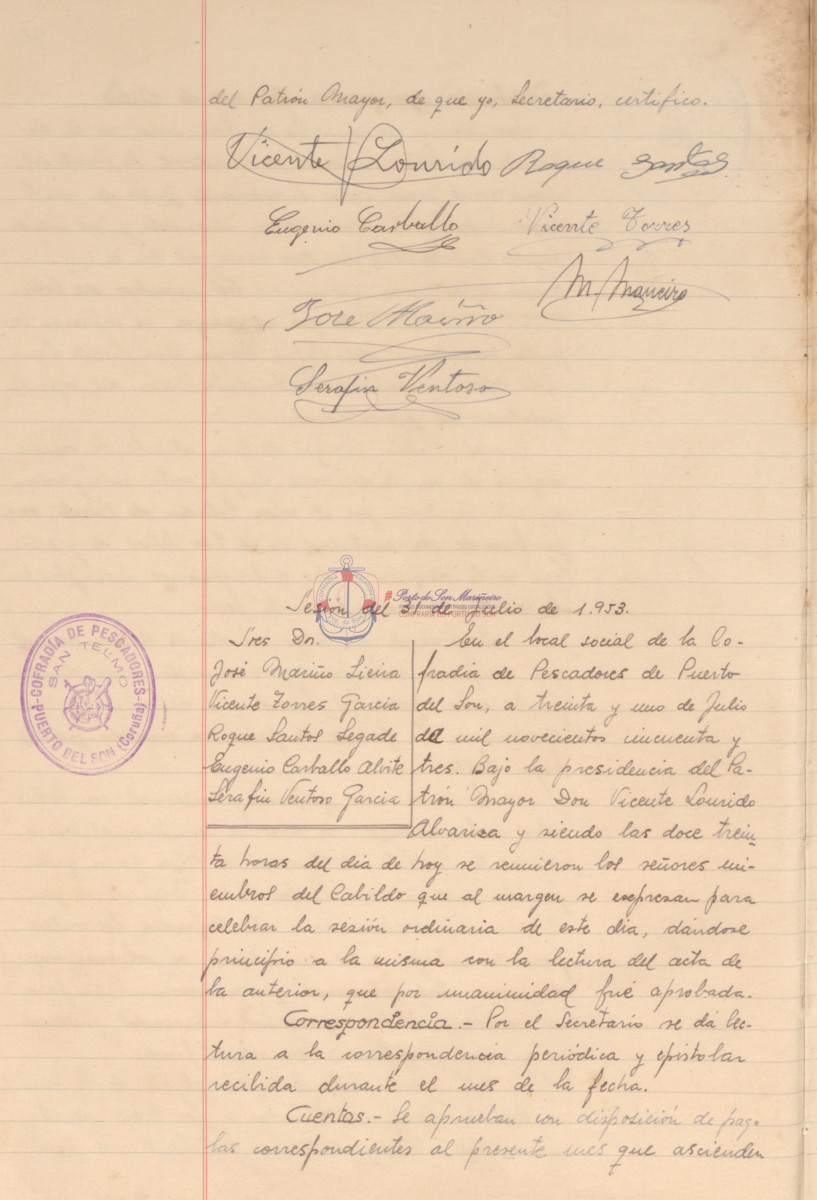 del Patrón Mayor, de que yo, Secretario, certifico.
Vicente Lourido Roque Santos
Eugenio Carballo Vicente Torres
M. Maneiro
Jose Mariño
Serafin Ventoso
Sesión del 31 de Julio de 1.953.
Porto do Son Mariñeiro
CONFRARÍA DE PORTO DO SON
COFRADÍA DE PESCADORES
SAN TELMO
PUERTO DEL SON (Coruña)
Sres Dn.
José Mariño Lieira
Vicente Torres Garcia
Roque Santos Segade
Eugenio Carballo Alvite
Serafin Ventoso Garcia
En el local social de la Co-
fradia de Pescadores de Puerto
del Son, a treinta y uno de Julio
de mil novecientos cincuenta y
tres. Bajo la presidencia del Pa-
trón Mayor Don Vicente Lourido
Alvariza y siendo las doce trein-
ta horas del dia de hoy se reunieron los señores mi-
embros del Cabildo que al margen se expresan para
celebrar la sesión ordinaria de este dia, dándose
principio a la misma con la lectura del acta de
la anterior, que por unanimidad fué aprobada.
Correspondencia.- Por el Secretario se dá lec-
tura a la correspondencia periódica y epistolar
recibida durante el mes de la fecha.
Cuentas.- Se aprueban con disposición de pago
las correspondientes al presente mes que ascienden